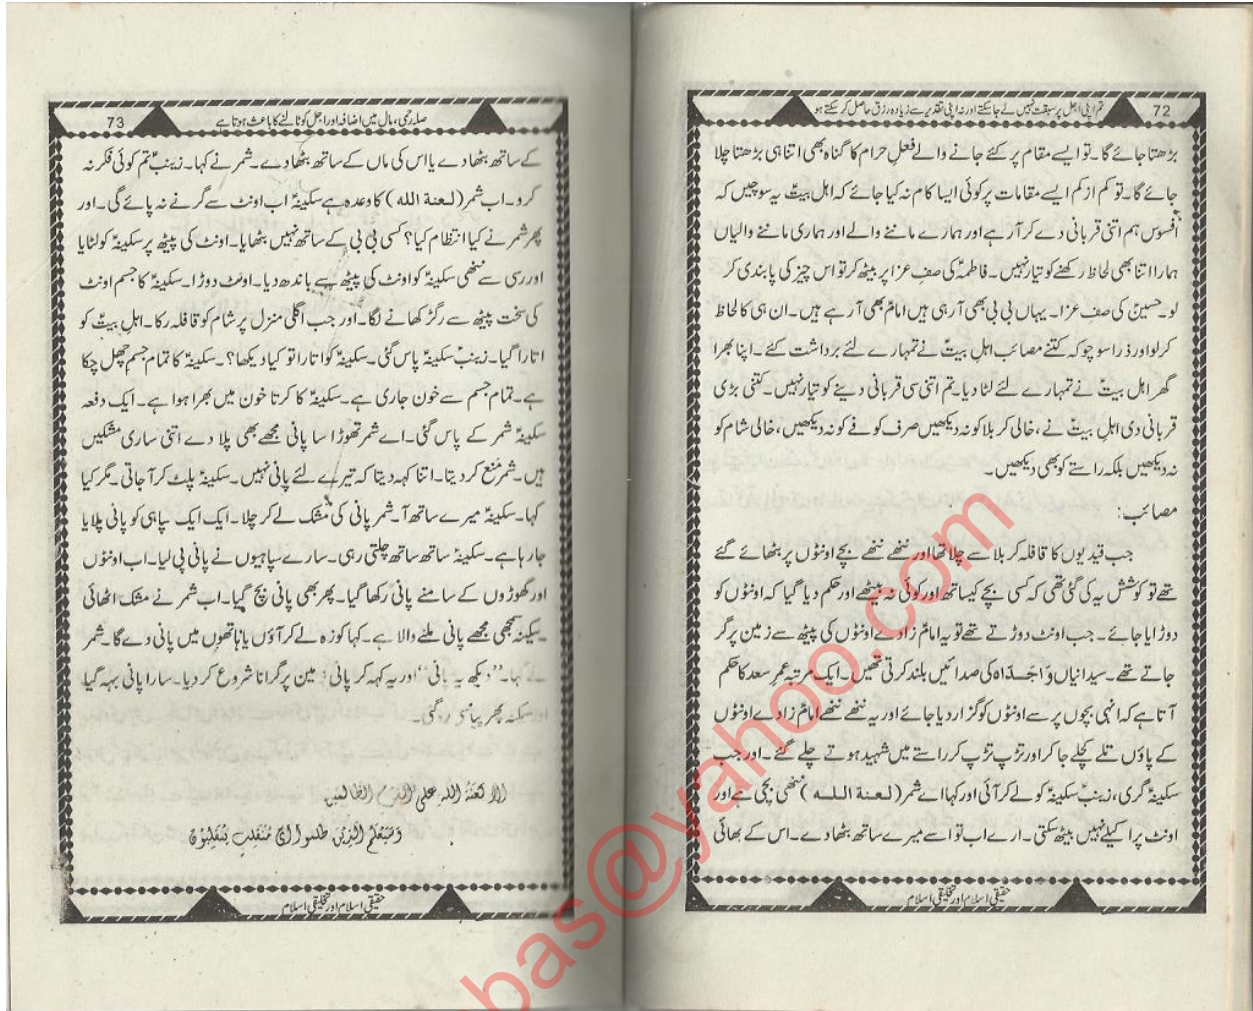 72
تم اپنی اجل پر سبقت نہیں لے جا سکتے اور نہ اپنی تقدیر سے زیادہ رزق حاصل کر سکتے ہو
بڑھتا جائے گا۔ تو ایسے مقام پر کئے جانے والے فعلِ حرام کا گناہ بھی اتنا ہی بڑھتا چلا
جائے گا۔ تو کم از کم ایسے مقامات پر کوئی ایسا کام نہ کیا جائے کہ اہل بیتؑ یہ سوچیں کہ
افسوس ہم اتنی قربانی دے کر آرہے اور ہمارے ماننے والے اور ہماری ماننے والیاں
ہمارا اتنا بھی لحاظ رکھنے کو تیار نہیں۔ فاطمہؑ کی صفِ عزا پر بیٹھ کر تو اس چیز کی پابندی کر
لو۔ حسینؑ کی صفِ عزا۔ یہاں بی بی بھی آرہی ہیں امامؑ بھی آرہے ہیں۔ ان ہی کا لحاظ
کر لو اور ذرا سوچو کہ کتنے مصائب اہلِ بیتؑ نے تمہارے لئے برداشت کئے۔ اپنا بھرا
گھر اہل بیتؑ نے تمہارے لئے لٹا دیا۔ تم اتنی سی قربانی دینے کو تیار نہیں۔ کتنی بڑی
قربانی دی اہلِ بیتؑ نے، خالی کربلا کو نہ دیکھیں صرف کوفے کو نہ دیکھیں، خالی شام کو
نہ دیکھیں بلکہ راستے کو بھی دیکھیں۔
مصائب:
جب قیدیوں کا قافلہ کربلا سے چلا تھا اور ننھے ننھے بچے اونٹوں پر بٹھائے گئے
تھے تو کوشش یہ کی گئی تھی کہ کسی بچے کیساتھ اور کوئی نہ بیٹھے اور حکم دیا گیا کہ اونٹوں کو
دوڑایا جائے۔ جب اونٹ دوڑتے تھے تو یہ امامؑ زادے اونٹوں کی پیٹھ سے زمین پر گر
جاتے تھے۔ سیدانیاں وَاجَدّاہ کی صدائیں بلند کرتی تھیں۔ ایک مرتبہ عمرِ سعد کا حکم
آتا ہے کہ انہی بچوں پر سے اونٹوں کو گزار دیا جائے اور یہ ننھے ننھے امامؑ زادے اونٹوں
کے پاؤں تلے کچلے جا کر اور تڑپ تڑپ کر راستے میں شہید ہوتے چلے گئے۔ اور جب
سکینہؑ گری، زینبؑ سکینہؑ کو لے کر آئی اور کہا اے شمر (لعنة اللہ) ننھی بچی ہے اور
اونٹ پر اکیلے نہیں بیٹھ سکتی۔ ارے اب تو اسے میرے ساتھ بٹھا دے۔ اس کے بھائی
حقیقی اسلام اور تخلیقی اسلام
73
صلہ رحمی، مال میں اضافہ اور اجل کو ٹالنے کا باعث ہوتا ہے
کے ساتھ بٹھا دے یا اس کی ماں کے ساتھ بٹھا دے۔ شمر نے کہا۔ زینبؑ تم کوئی فکر نہ
کرو۔ اب شمر (لعنة اللہ) کا وعدہ ہے سکینہؑ اب اونٹ سے گرنے نہ پائے گی۔ اور
پھر شمر نے کیا انتظام کیا؟ کسی بی بی کے ساتھ نہیں بٹھایا۔ اونٹ کی پیٹھ پر سکینہؑ کو لٹایا
اور رسی سے ننھی سکینہؑ کو اونٹ کی پیٹھ سے باندھ دیا۔ اونٹ دوڑا۔ سکینہؑ کا جسم اونٹ
کی سخت پیٹھ سے رگڑ کھانے لگا۔ اور جب اگلی منزل پر شام کو قافلہ رکا۔ اہلِ بیتؑ کو
اتارا گیا۔ زینبؑ سکینہؑ پاس گئی۔ سکینہؑ کو اتارا تو کیا دیکھا؟۔ سکینہؑ کا تمام جسم چھل چکا
ہے۔ تمام جسم سے خون جاری ہے۔ سکینہؑ کا کرتا خون میں بھرا ہوا ہے۔ ایک دفعہ
سکینہؑ شمر کے پاس گئی۔ اے شمر تھوڑا سا پانی مجھے بھی پلا دے اتنی ساری مشکیں
ہیں۔ شمر منع کر دیتا۔ اتنا کہہ دیتا کہ تیرے لئے پانی نہیں۔ سکینہؑ پلٹ کر آجاتی۔ مگر کیا
کہا۔ سکینہؑ میرے ساتھ آ۔ شمر پانی کی مشک لے کر چلا۔ ایک ایک سپاہی کو پانی پلایا
جا رہا ہے۔ سکینہؑ ساتھ ساتھ چلتی رہی۔ سارے سپاہیوں نے پانی پی لیا۔ اب اونٹوں
اور گھوڑوں کے سامنے پانی رکھا گیا۔ پھر بھی پانی بچ گیا۔ اب شمر نے مشک اٹھائی
سکینہ سمجھی مجھے پانی ملنے والا ہے۔ کہا کوزہ لے کر آؤں یا ہاتھوں میں پانی دے گا۔ شمر
نے کہا۔ ”دیکھ یہ پانی“ اور یہ کہہ کر پانی زمین پر گرانا شروع کر دیا۔ سارا پانی بہہ گیا
اور سکینہ پھر پیاسی رہ گئی۔
الا لعنة اللہ علی القوم الظالمین
وسیعلم الذین ظلموا ای منقلب ینقلبون
حقیقی اسلام اور تخلیقی اسلام
bas@yahoo.com